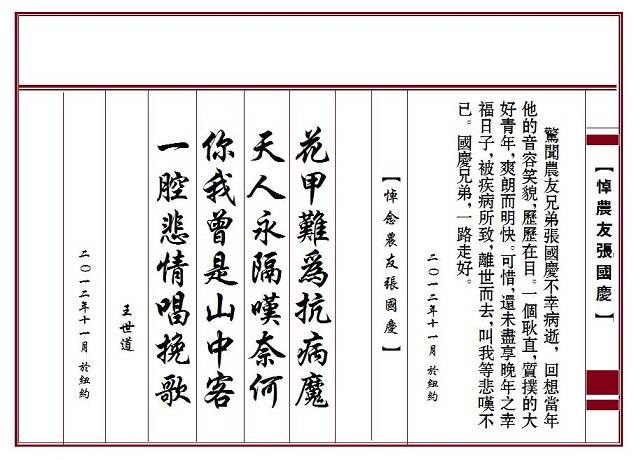 【悼農友張國慶】
驚聞農友兄弟張國慶不幸病逝，回想當年
他的音容笑貌，歷歷在目。一個耿直，質撲的大
好青年，爽朗而明快。可惜，還未盡享晚年之幸
福日子，被疾病所致，離世而去，叫我等悲嘆不
已。國慶兄弟，一路走好。
二〇一二年十一月 於紐約
【悼念農友張國慶】
花甲難為抗病魔
天人永隔嘆奈何
你我曾是山中客
一腔悲情唱挽歌
王世道
二〇一二年十一月 於紐約